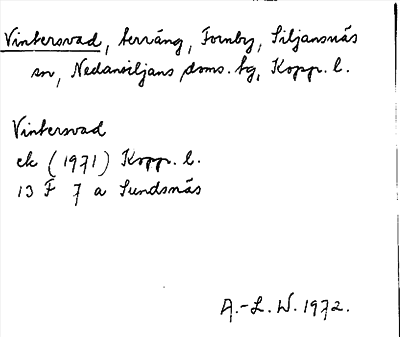 Vintersvad, terräng, Fornby, Siljansnäs
sn, Nedansiljans doms. tg, Kopp. l.
Vintersvad
ek (1971) Kopp. l.
13 F 7 a Sundsnäs
A.-L. W. 1972.